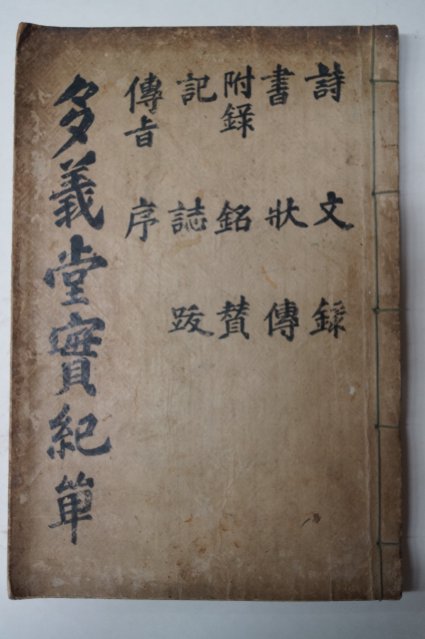 詩 文 錄
書 狀 傳
附錄 銘 賛
記 誌 跋
傳旨 序
多義堂實紀單